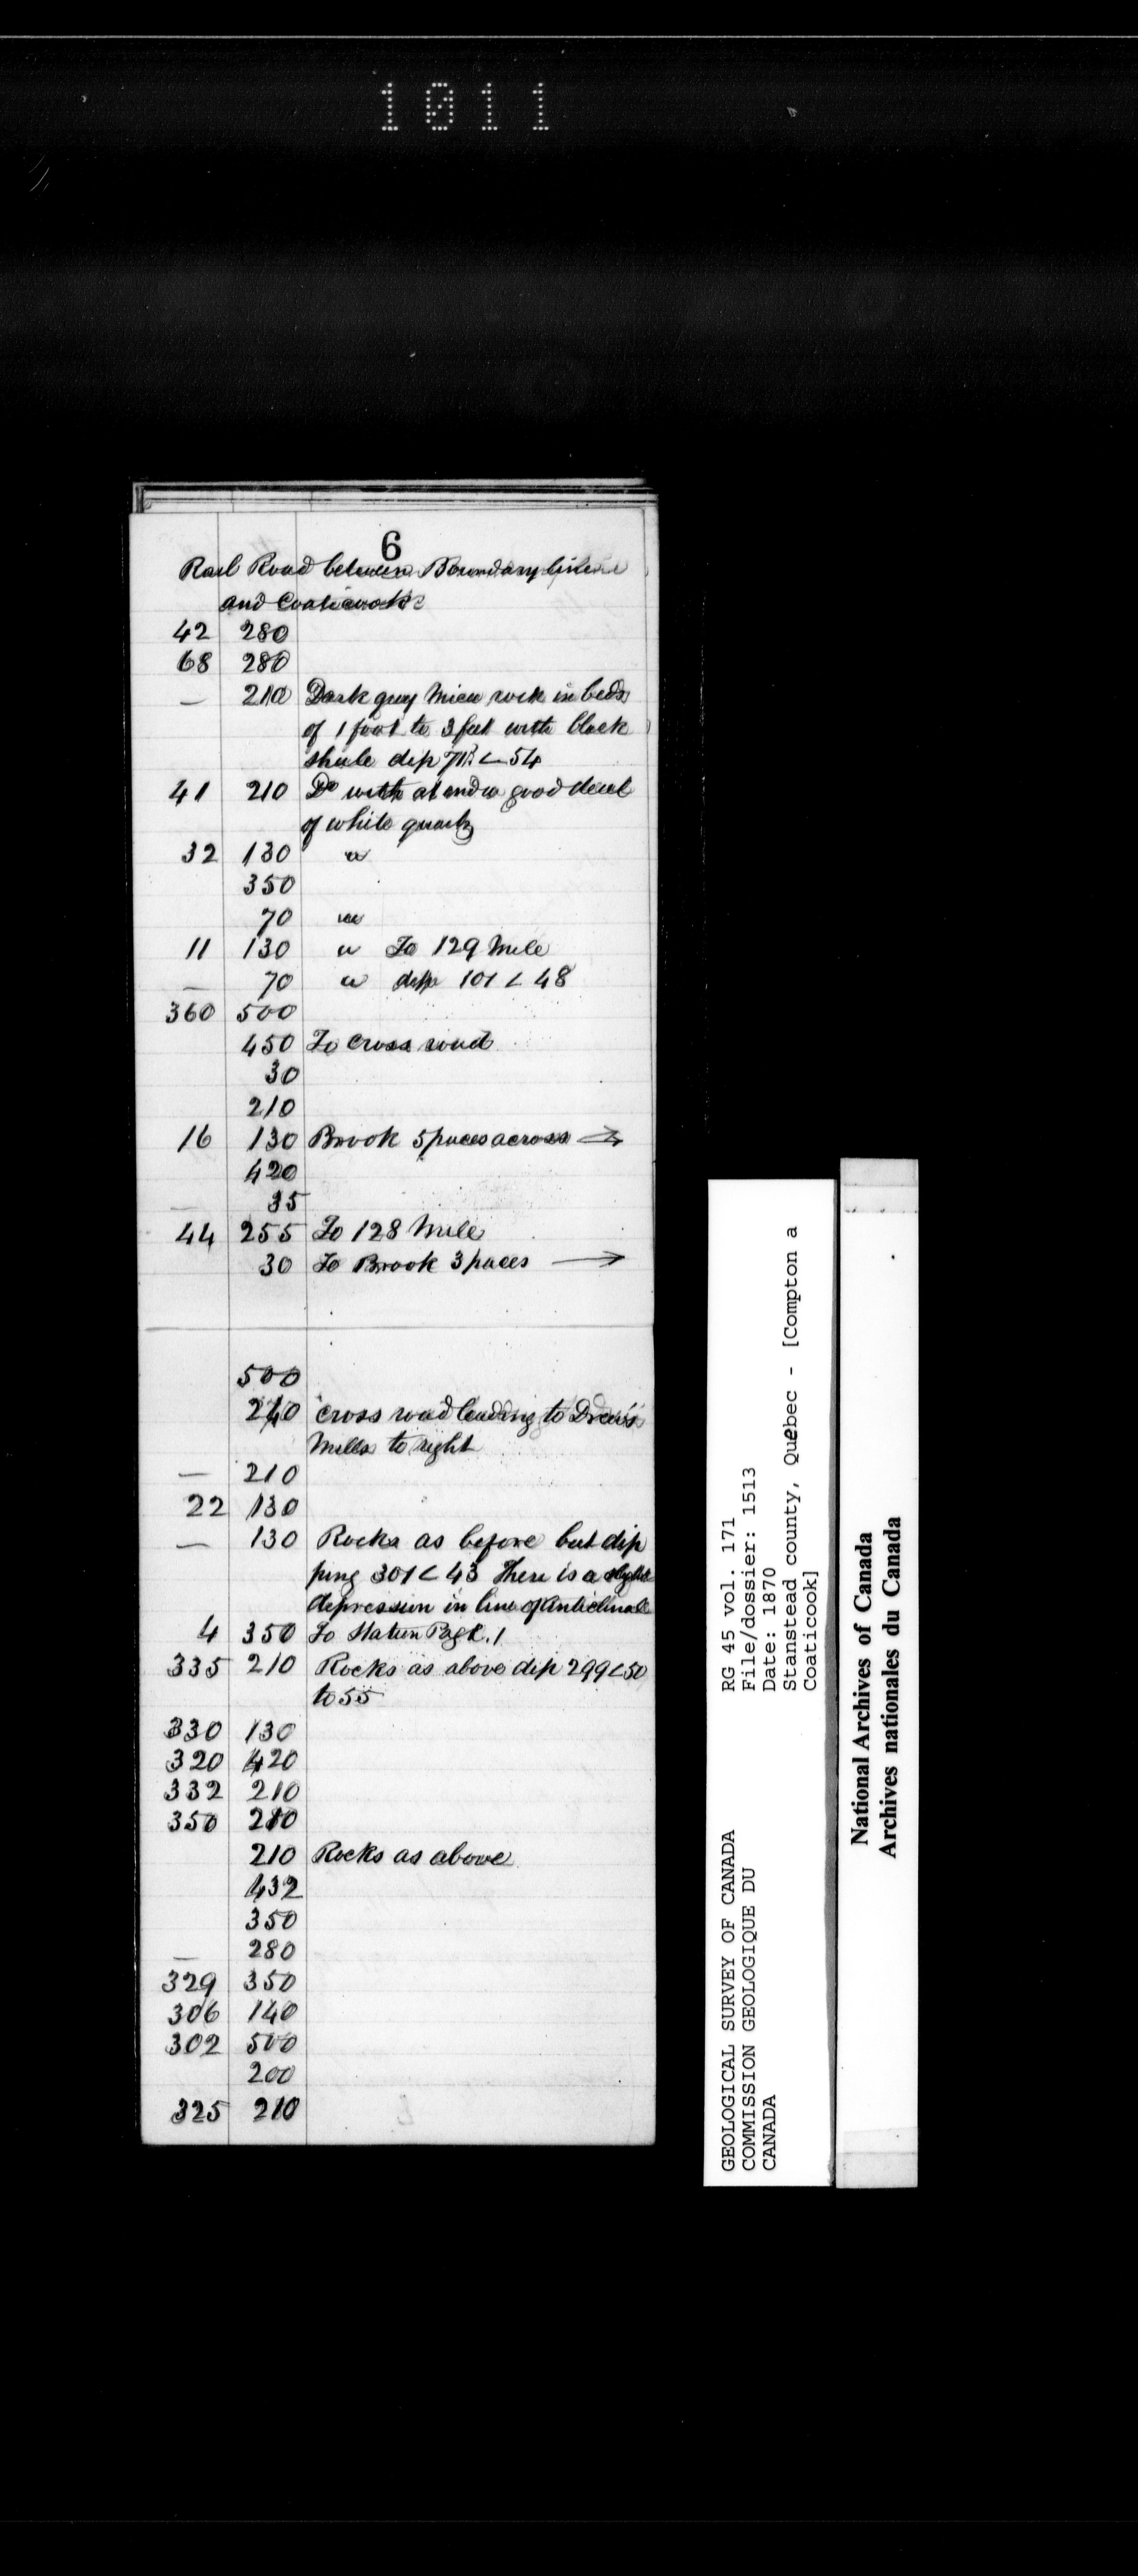 1011
6
Rail Road between Boundary line
and Coaticook
42 280
68 280
— 210 Dark grey Mica rock in beds
of 1 foot to 3 feet with black
shale dip < 54
41 210 Do with a good deal
of white quartz
32 130 "
350
70 "
11 130 " To 129 Mile
— 70 " dip 101 < 48
360 500
450 To Cross road
30
210
16 130 Brook 5 paces across →
420
— 35
44 255 To 128 Mile
30 To Brook 3 paces →
500
240 cross road leading to Drew's
Mills to right
— 210
22 130
— 130 Rocks as before but dip
ping 301 < 43 There is a slight
depression in line of Anticlinal
4 350 To Station Page 1
335 210 Rocks as above dip 299 < 50
to 55
330 130
320 420
332 210
350 280
210 Rocks as above
432
350
— 280
329 350
306 140
302 500
200
325 210
GEOLOGICAL SURVEY OF CANADA
COMMISSION GEOLOGIQUE DU
CANADA
RG 45 vol. 171
File/dossier: 1513
Date: 1870
Stanstead county, Quebec - [Compton a
Coaticook]
National Archives of Canada
Archives nationales du Canada